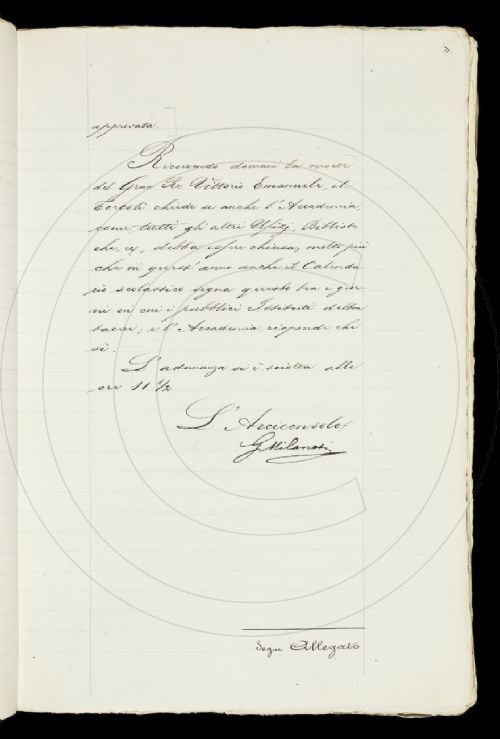 approvata.
Ricorrendo domani la morte
del Gran Re Vittorio Emanuele, il
Tortoli chiede se anche l'Accademia,
come tutti gli altri Ufizj, Bibliote
che, ec, debba esser chiusa, molto più
che in quest' anno anche il Calenda
rio scolastico segna questo tra i gior
ni in cui i pubblici Istituti debbon
tacere; e l'Accademia risponde che
sì.
L'adunanza si è sciolta alle
ore 11 1/2
L'Arciconsolo
G Milanesi
Segue Allegato